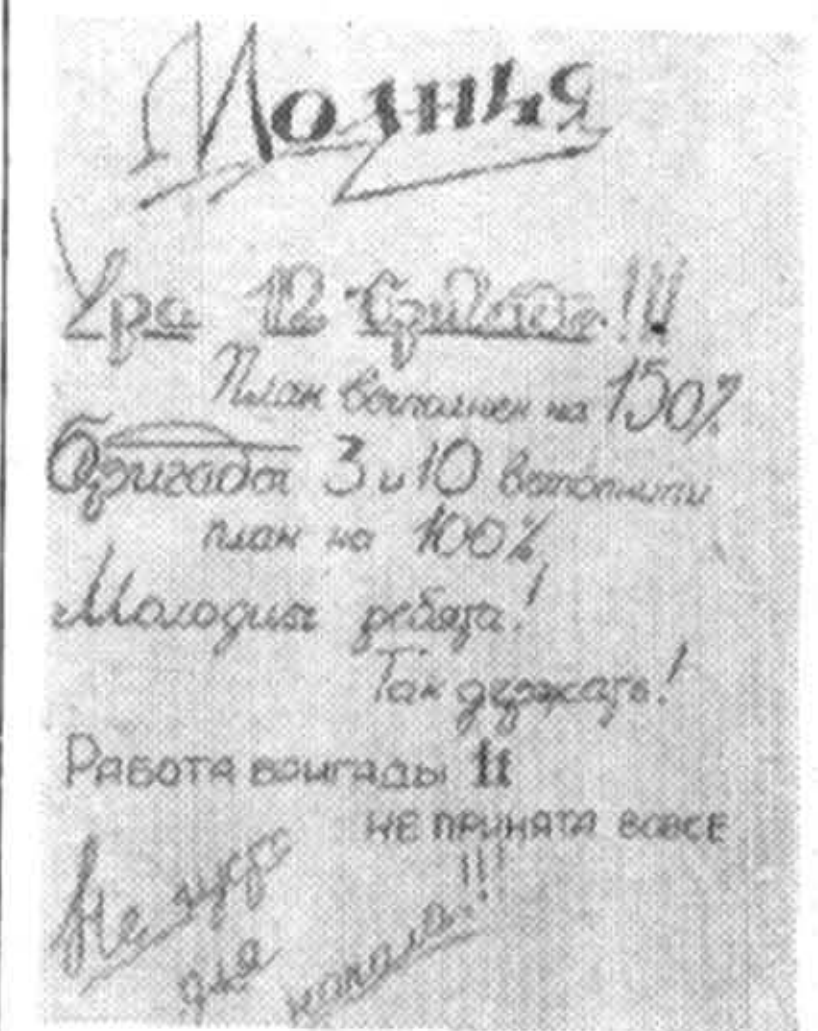 Молнья
Ура 12 бригаде!!!
План выполнен на 150%
Бригады 3 и 10 выполнили
план на 100%
Молодцы ребята!
Так держать!
Работа бригады 11
не принята вовсе
Не густо
для
начала!!!